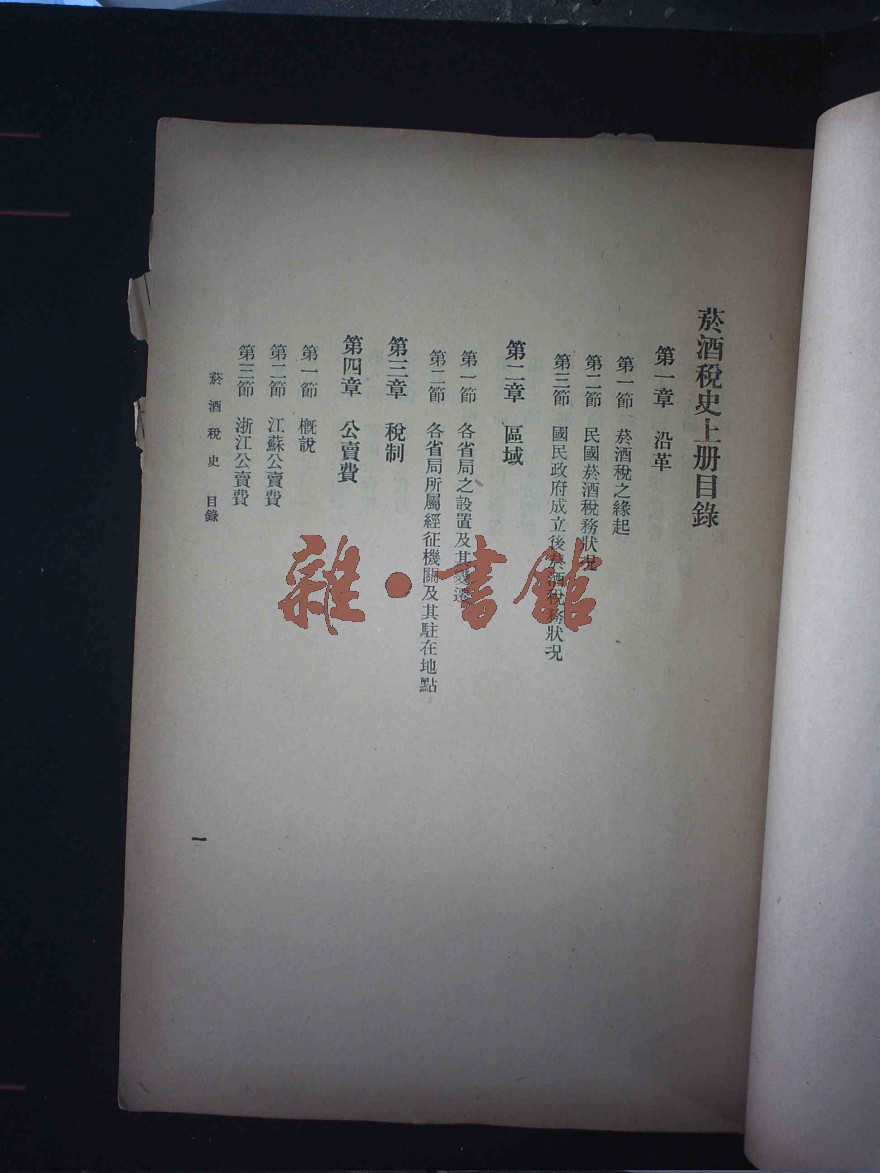 菸酒稅史上册目錄
第一章 沿革
第一節 菸酒稅之緣起
第二節 民國菸酒稅務狀况
第三節 國民政府成立後菸酒稅務狀况
第二章 區域
第一節 各省局之設置及其變遷
第二節 各省局所屬經征機關及其駐在地點
第三章 稅制
第四章 公賣費
第一節 概說
第二節 江蘇公賣費
第三節 浙江公賣費
菸酒稅史 目錄
一
雜·書館